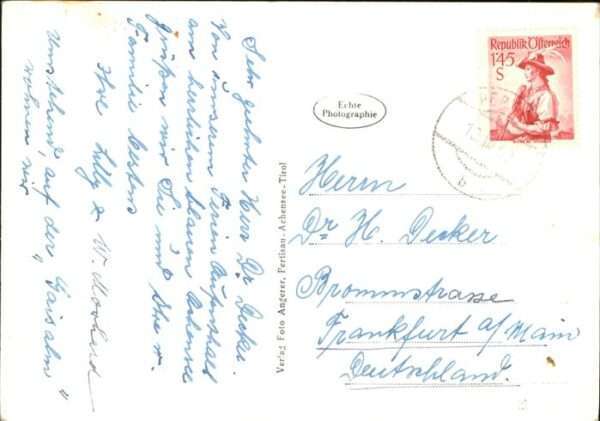 Sehr geehrter Herr Dr. Decker.
Von unserem Ferien Aufenthalt
am herrlichen blauen Achensee
grüßen wir Sie und Ihre w.
Familie bestens
Ihre Lilly & W.
Umstehend, auf der "Gaisalm"
wohnen wir
Verlag Foto Angerer, Pertisau-Achensee-Tirol
Echte
Photographie
Republik Österreich
1'45
S
Herrn
Dr H. Decker
Brommstrasse
Frankfurt a/Main
Deutschland.